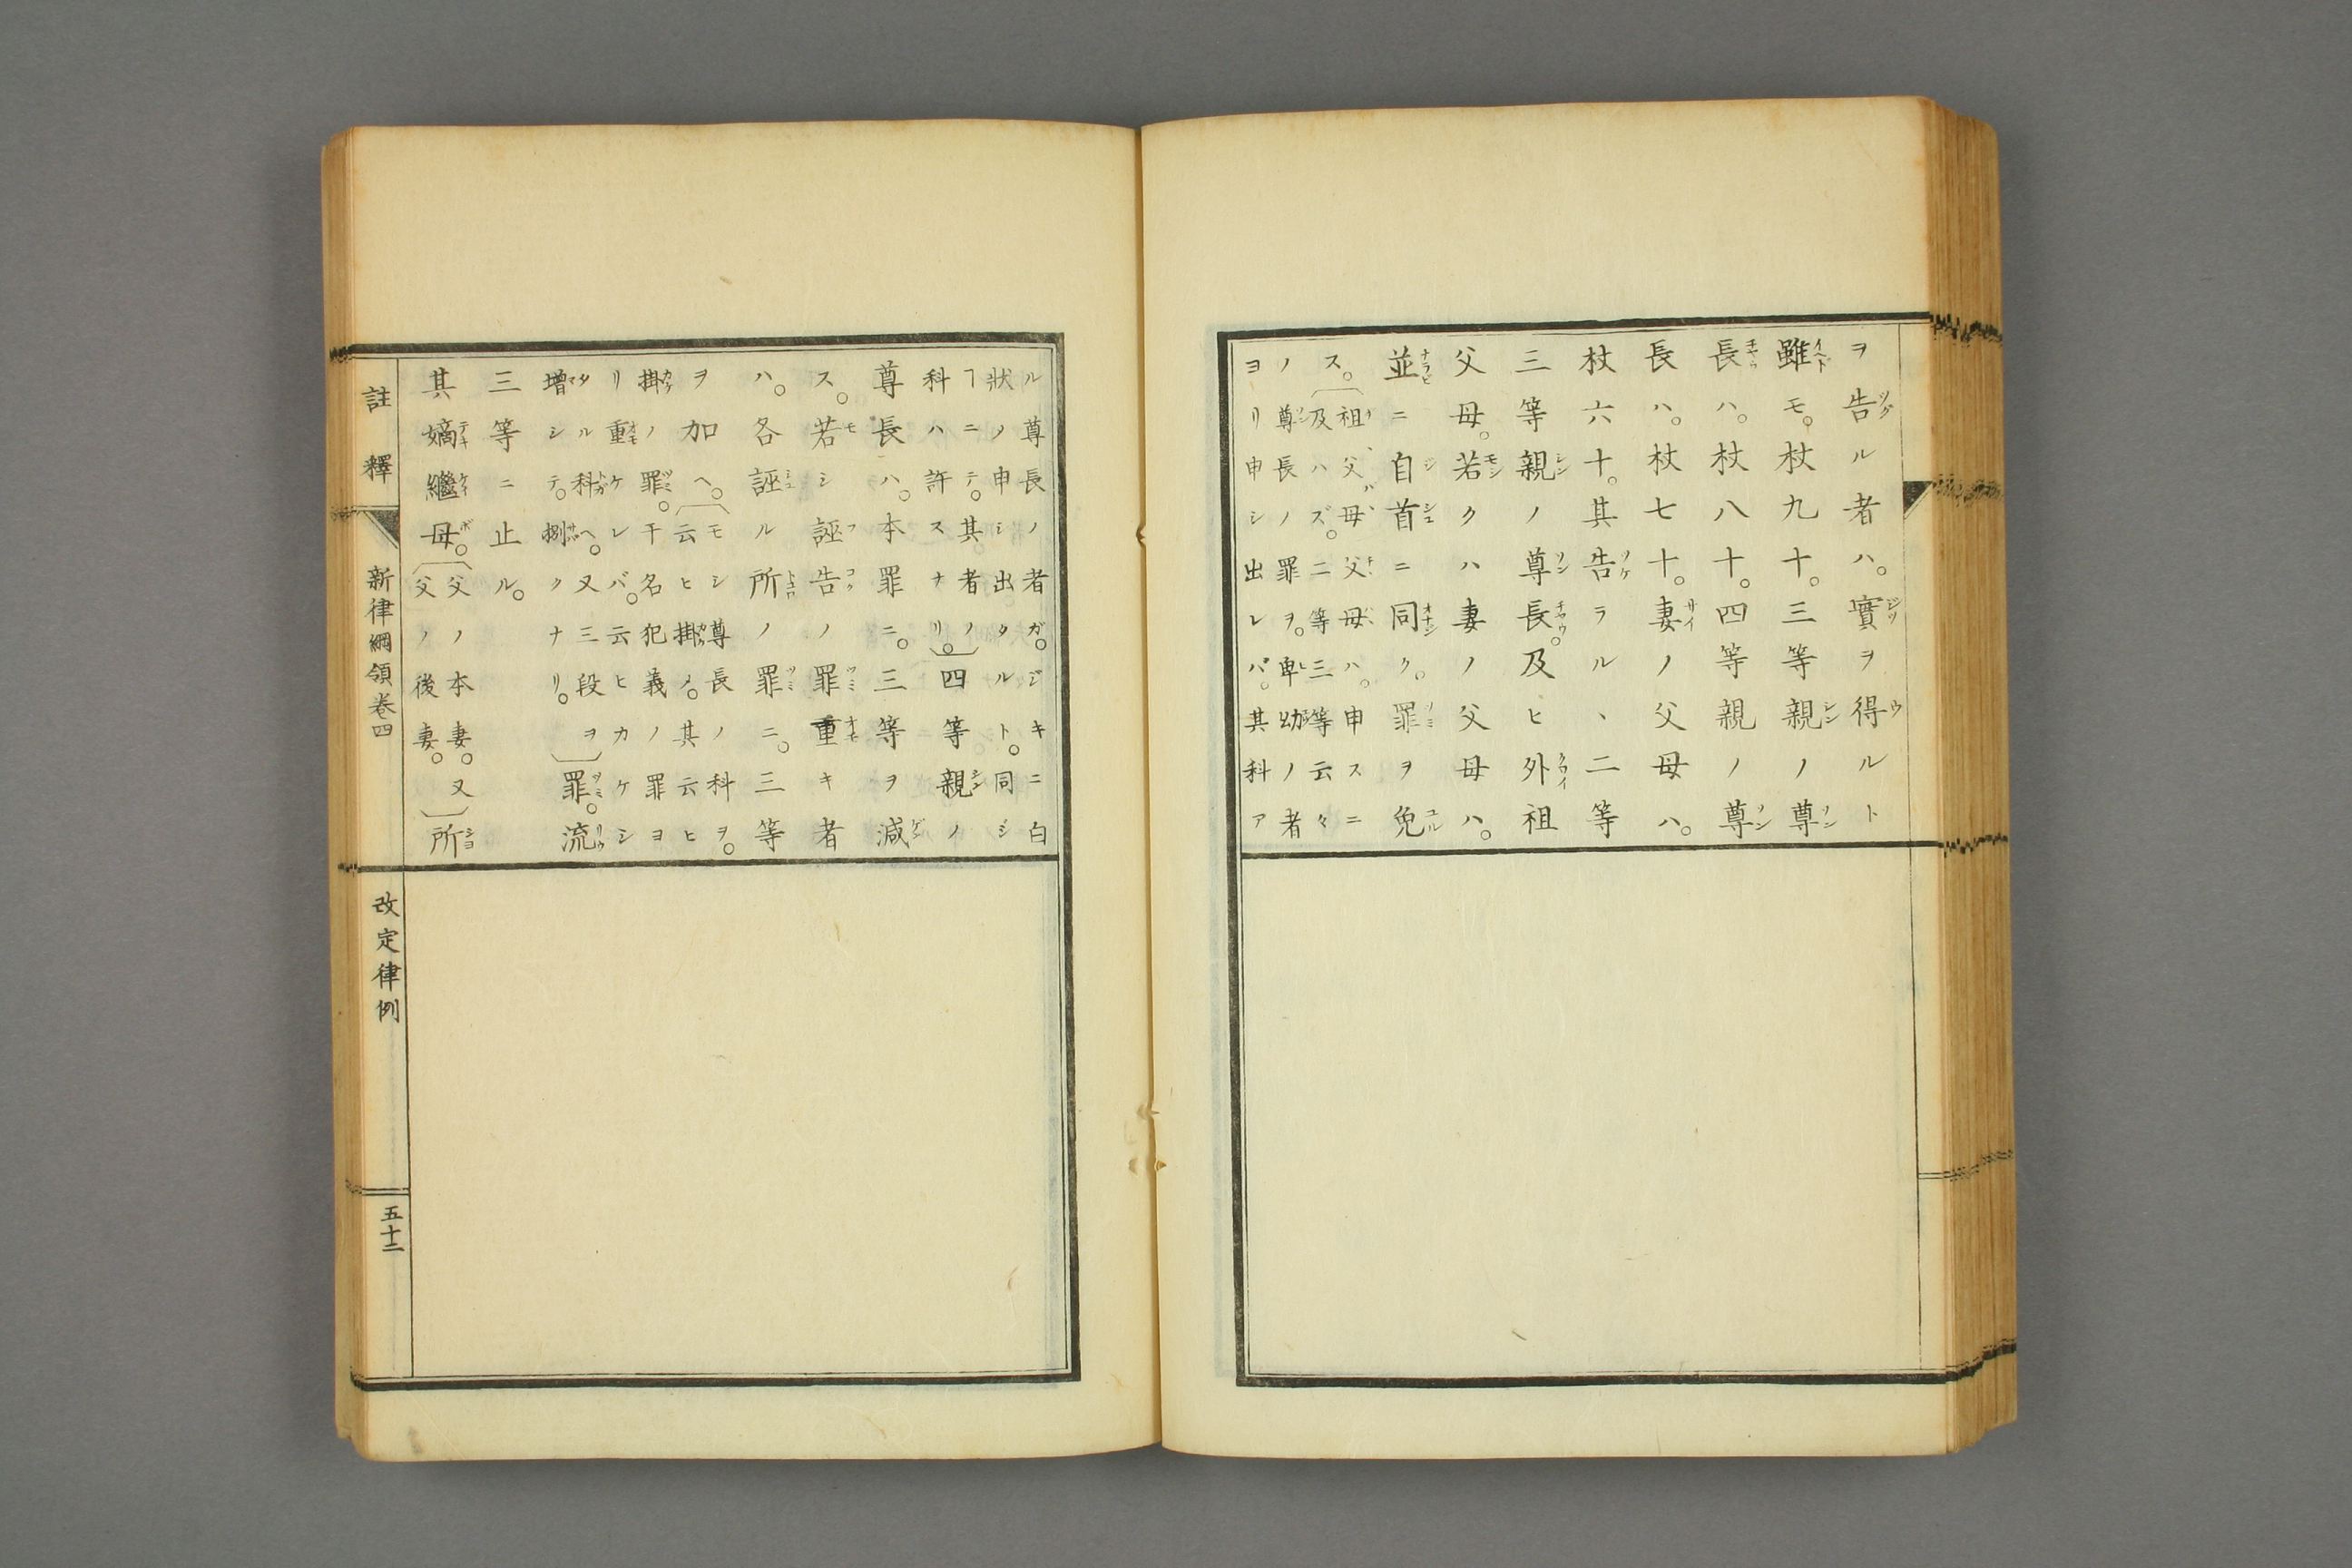 ヲ告ル者ハ。實ヲ得ルト
雖モ。杖九十。三等親ノ尊
長ハ。杖八十。四等親ノ尊
長ハ。杖七十。妻ノ父母ハ。
杖六十。其告ラルヽ二等
三等親ノ尊長。及ヒ外祖
父母。若クハ妻ノ父母ハ。
並ニ自首ニ同ク。罪ヲ免
ス。祖父母父母ハ。申スニ
及ハズ。二等三等云々
ノ尊長ノ罪ヲ。卑幼ノ者
ヨリ申シ出レバ。其科ア
ル尊長ノ者ガ。ジキニ白
狀ノ申シ出タルト。同シ
ヿニテ。其者ノ
科ハ許スナリ。四等親ノ
尊長ハ。本罪ニ。三等ヲ減
ス。若シ誣告ノ罪重キ者
ハ。各誣ル所ノ罪ニ。三等
ヲ加ヘ。モシ尊長ノ科ヲ。
云ヒ掛ノ。其云ヒ
掛ノ罪。干名犯義ノ罪ヨ
リ重ケレバ。云ヒカケシ
タル科ヘ。又三段ヲ
増シテ。捌クナリ。罪。流
三等ニ止ル。
其嫡繼母。父ノ本妻。又
父ノ後妻。所
註釋 新律綱領卷四 改定律例 五十二